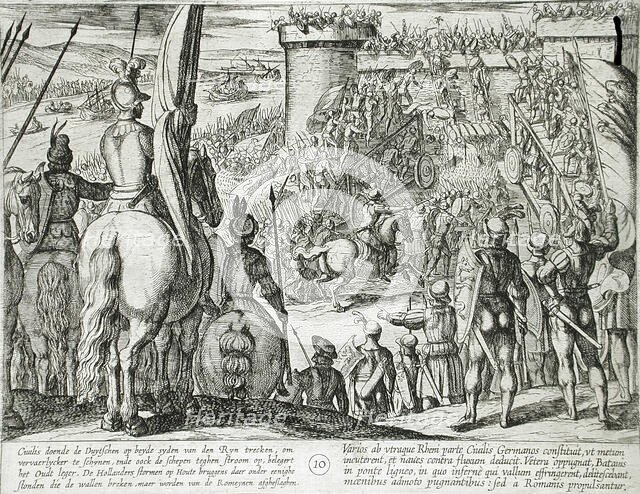 Civilis doende de Duytschen op beyde syden van den Ryn trecken, om
vervaerlycker te schynen, ende oock de schepen teghen stroom op, belegert
het Oudt leger. De Hollanders stormen op Houte bruggens daer onder eenighe
stonden die de wallen breken, maer worden van de Romeynen afgheslaghen.
10
Varios ab utraque Rheni parte Civilis Germanos constituit, ut metum
incuterent, et naves contra fluxum deducit. Vetera oppugnat, Batavis
in ponte ligneo, in quo infernè qui vallum effringerent, delitescebant,
moenibus admoto pugnantibus: sed a Romanis propulsantur.
Heritage
Heritage
Heritage
Heritage